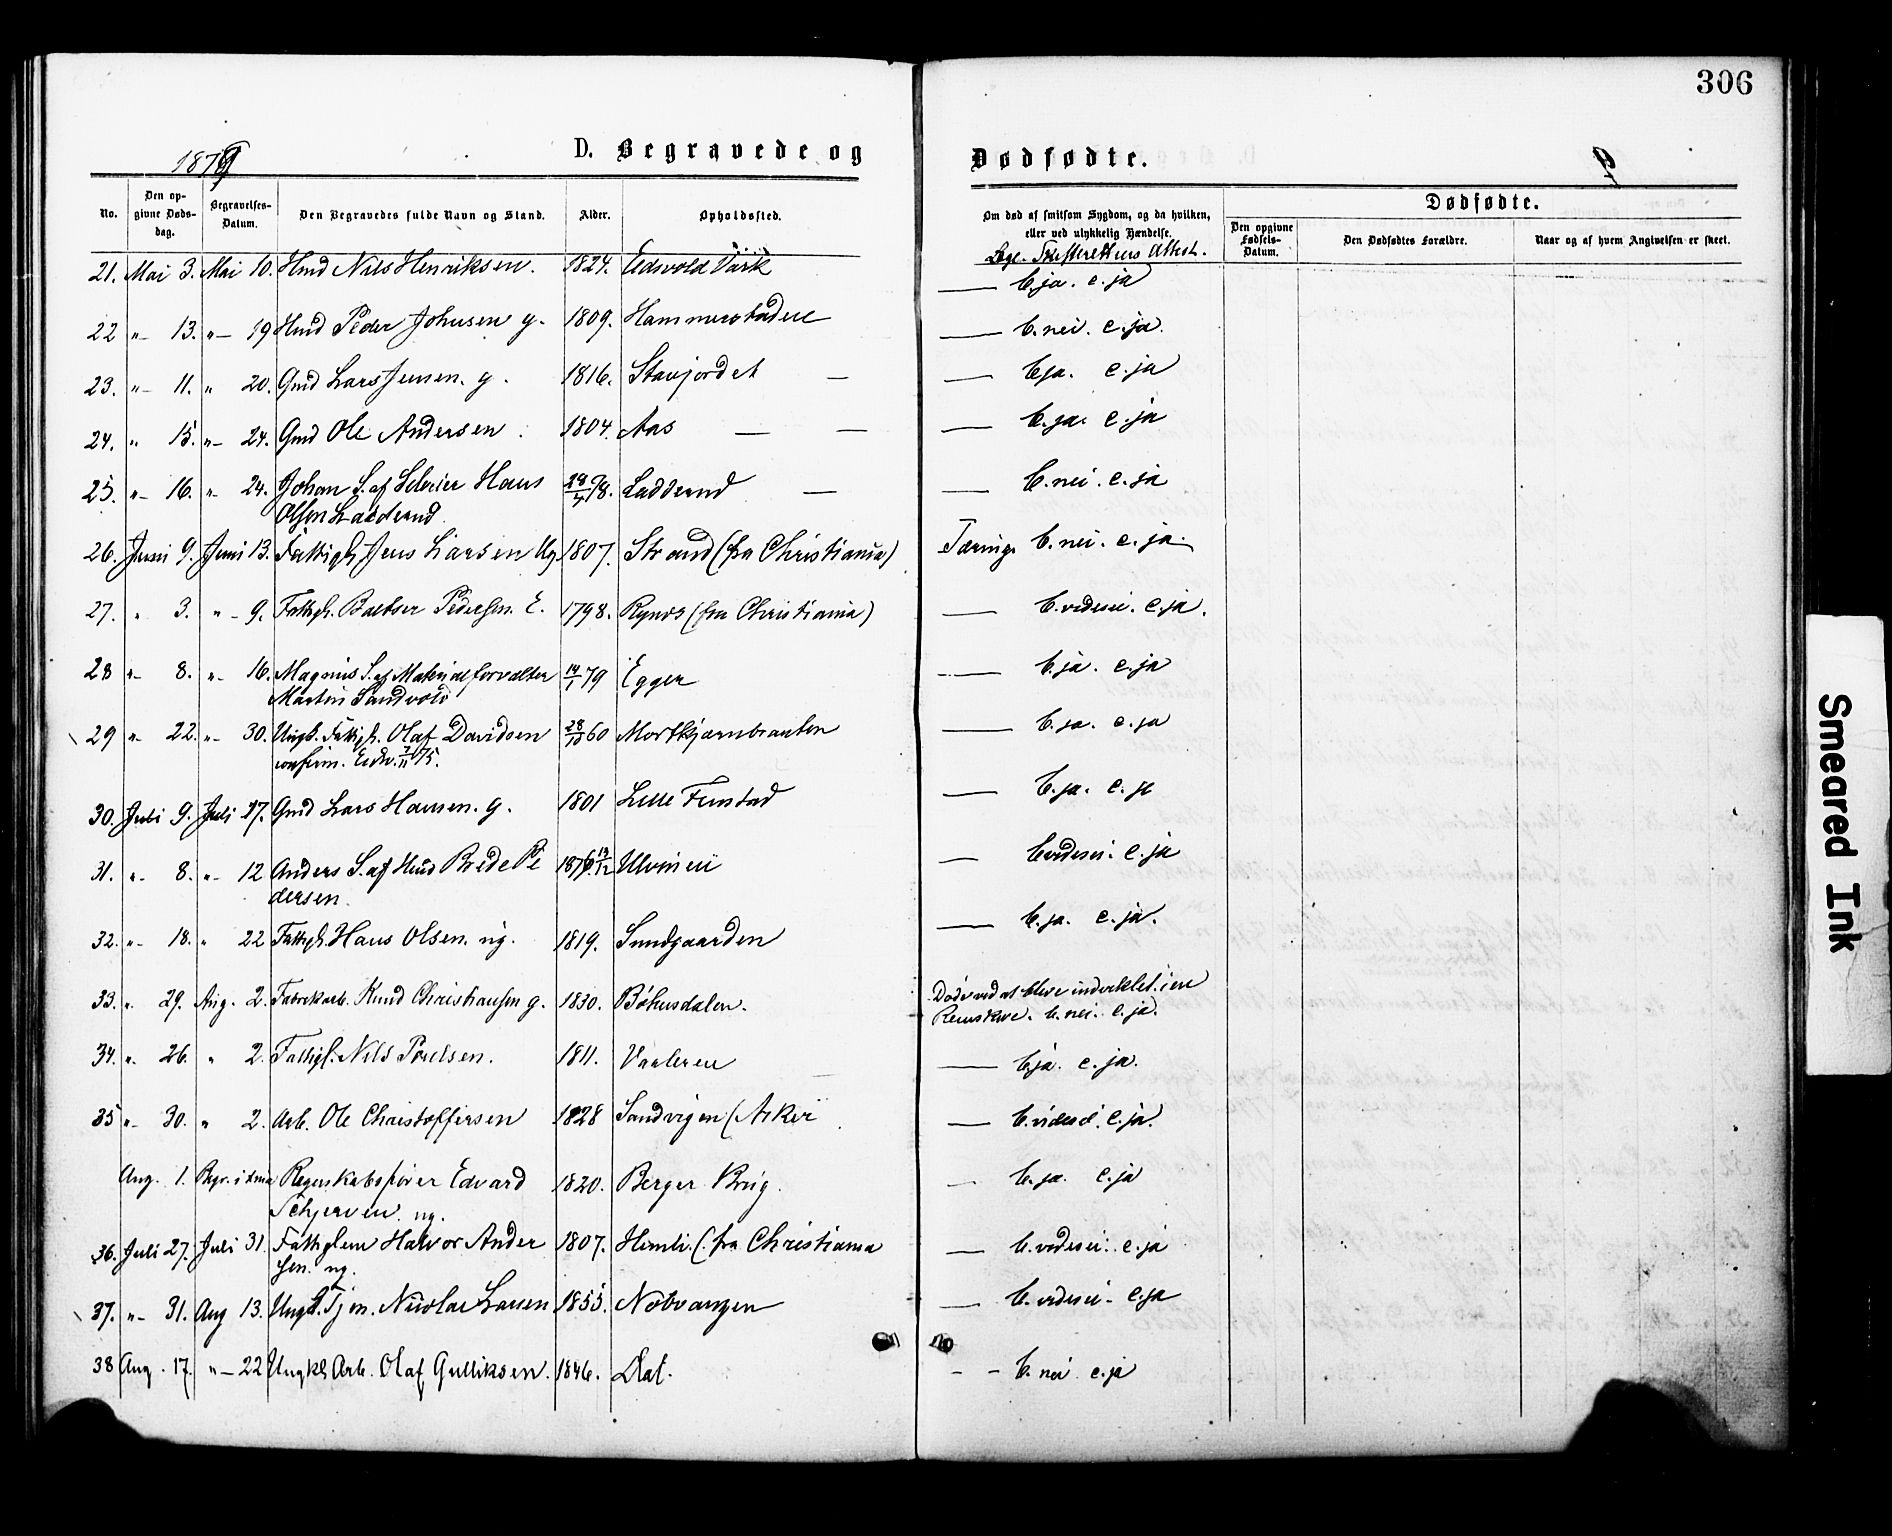 306
1879
D. Begravede og Dødfødte.
No. Den opgivne Dødsdag. Begravelses-Datum. Den Begravedes fulde Navn og Stand. Alder. Opholdssted. Om død af smitsom Sygdom, og da hvilken, eller ved ulykkelig Hændelse. Dødfødte. Den opgivne Fødsels-Datum. Den Dødfødtes Forældre. Naar og af hvem Angivelsen er skeet.
Attest.
21. Mai 3. Mai 10. Hmd Nils Henriksen. 1824. Eidsvold Værk — b. ja. c. ja
22 "– 13. "– 19 Hmd Peder Johnsen g. 1809. — b. nei. c. ja.
23. "– 11. " 20. Gmd Lars Jensen. g. 1816. Stavjordet — — b. ja. c. ja
24. " 15. "– 24. Gmd Ole Andersen. 1804. Aas — — — b. ja. c. ja
25. "– 16. "– 24. Johan S. af Selveier Hans 78. Ladderud — — b. nei. c. ja
Olsen Ladderud.
26. Juni 9. Juni 13. Fattigl. Jens Larsen Ug. 1807. Strand (fra Christiania) Tæring. b. nei. c. ja.
27. " 3. "– 9. Fattigl. Baltser Pedersen. E. 1798. (fra Christiania) — b. vides ei. c. ja.
28 "– 8. "– 16. Magnus S. af Materialforvalter 14/1 79 Egger — b. ja. c. ja
Martin Sandvold
29 "– 22. "– 30. Ungk. Fattigl. Olaf Davidsen 28/10 60 — b. ja. c. ja
confirm. Eidsv. 7/11 75.
30. Juli 9. Juli 17. Gmd Lars Hansen. g. 1801 Lille Finstad — b. ja. c. ja
31. "– 8. "– 12 Anders S. af Hmd Brede Pe 13/12 Ulvineie — b. vides ei. c. ja
dersen.
32. "– 18. " 22 Fattigl. Hans Olsen. ug. 1819. Sundgaarden — b. ja. c. ja.
33. " 29. Aug. 2. Fabrikarb. Knud Christiansen g. 1830. Bøhnsdalen. Døde ved at blive indviklet i en
Remskive. b. nei. c. ja.
34. " 26. " 2. Fattigl. Nils Poulsen. 1811. — b. ja. c. ja.
35 "– 30. " 2. Arb. Ole Christoffersen 1828 Sandvigen (Asker — b. vides ei. c. ja.
Aug. 1. Begr. i Regnskabsfører Edvard 1820. Berger Brug. — b. ja. c. ja
Schjerven. ug.
36. Juli 27. Juli 31. Fattiglem Halvor Ander 1807. Himli. (fra Christiania — b. vides ei. c. ja
sen. ug.
37. "– 31. Aug 13. Ungk. Tjm. Nicolai Larsen 1855. — b. vides ei. c. ja
38 Aug. 17. "– 22 Ungkl Arb. Olaf Gulliksen. 1846. Dal. – – b. nei c. ja
Smeared Ink